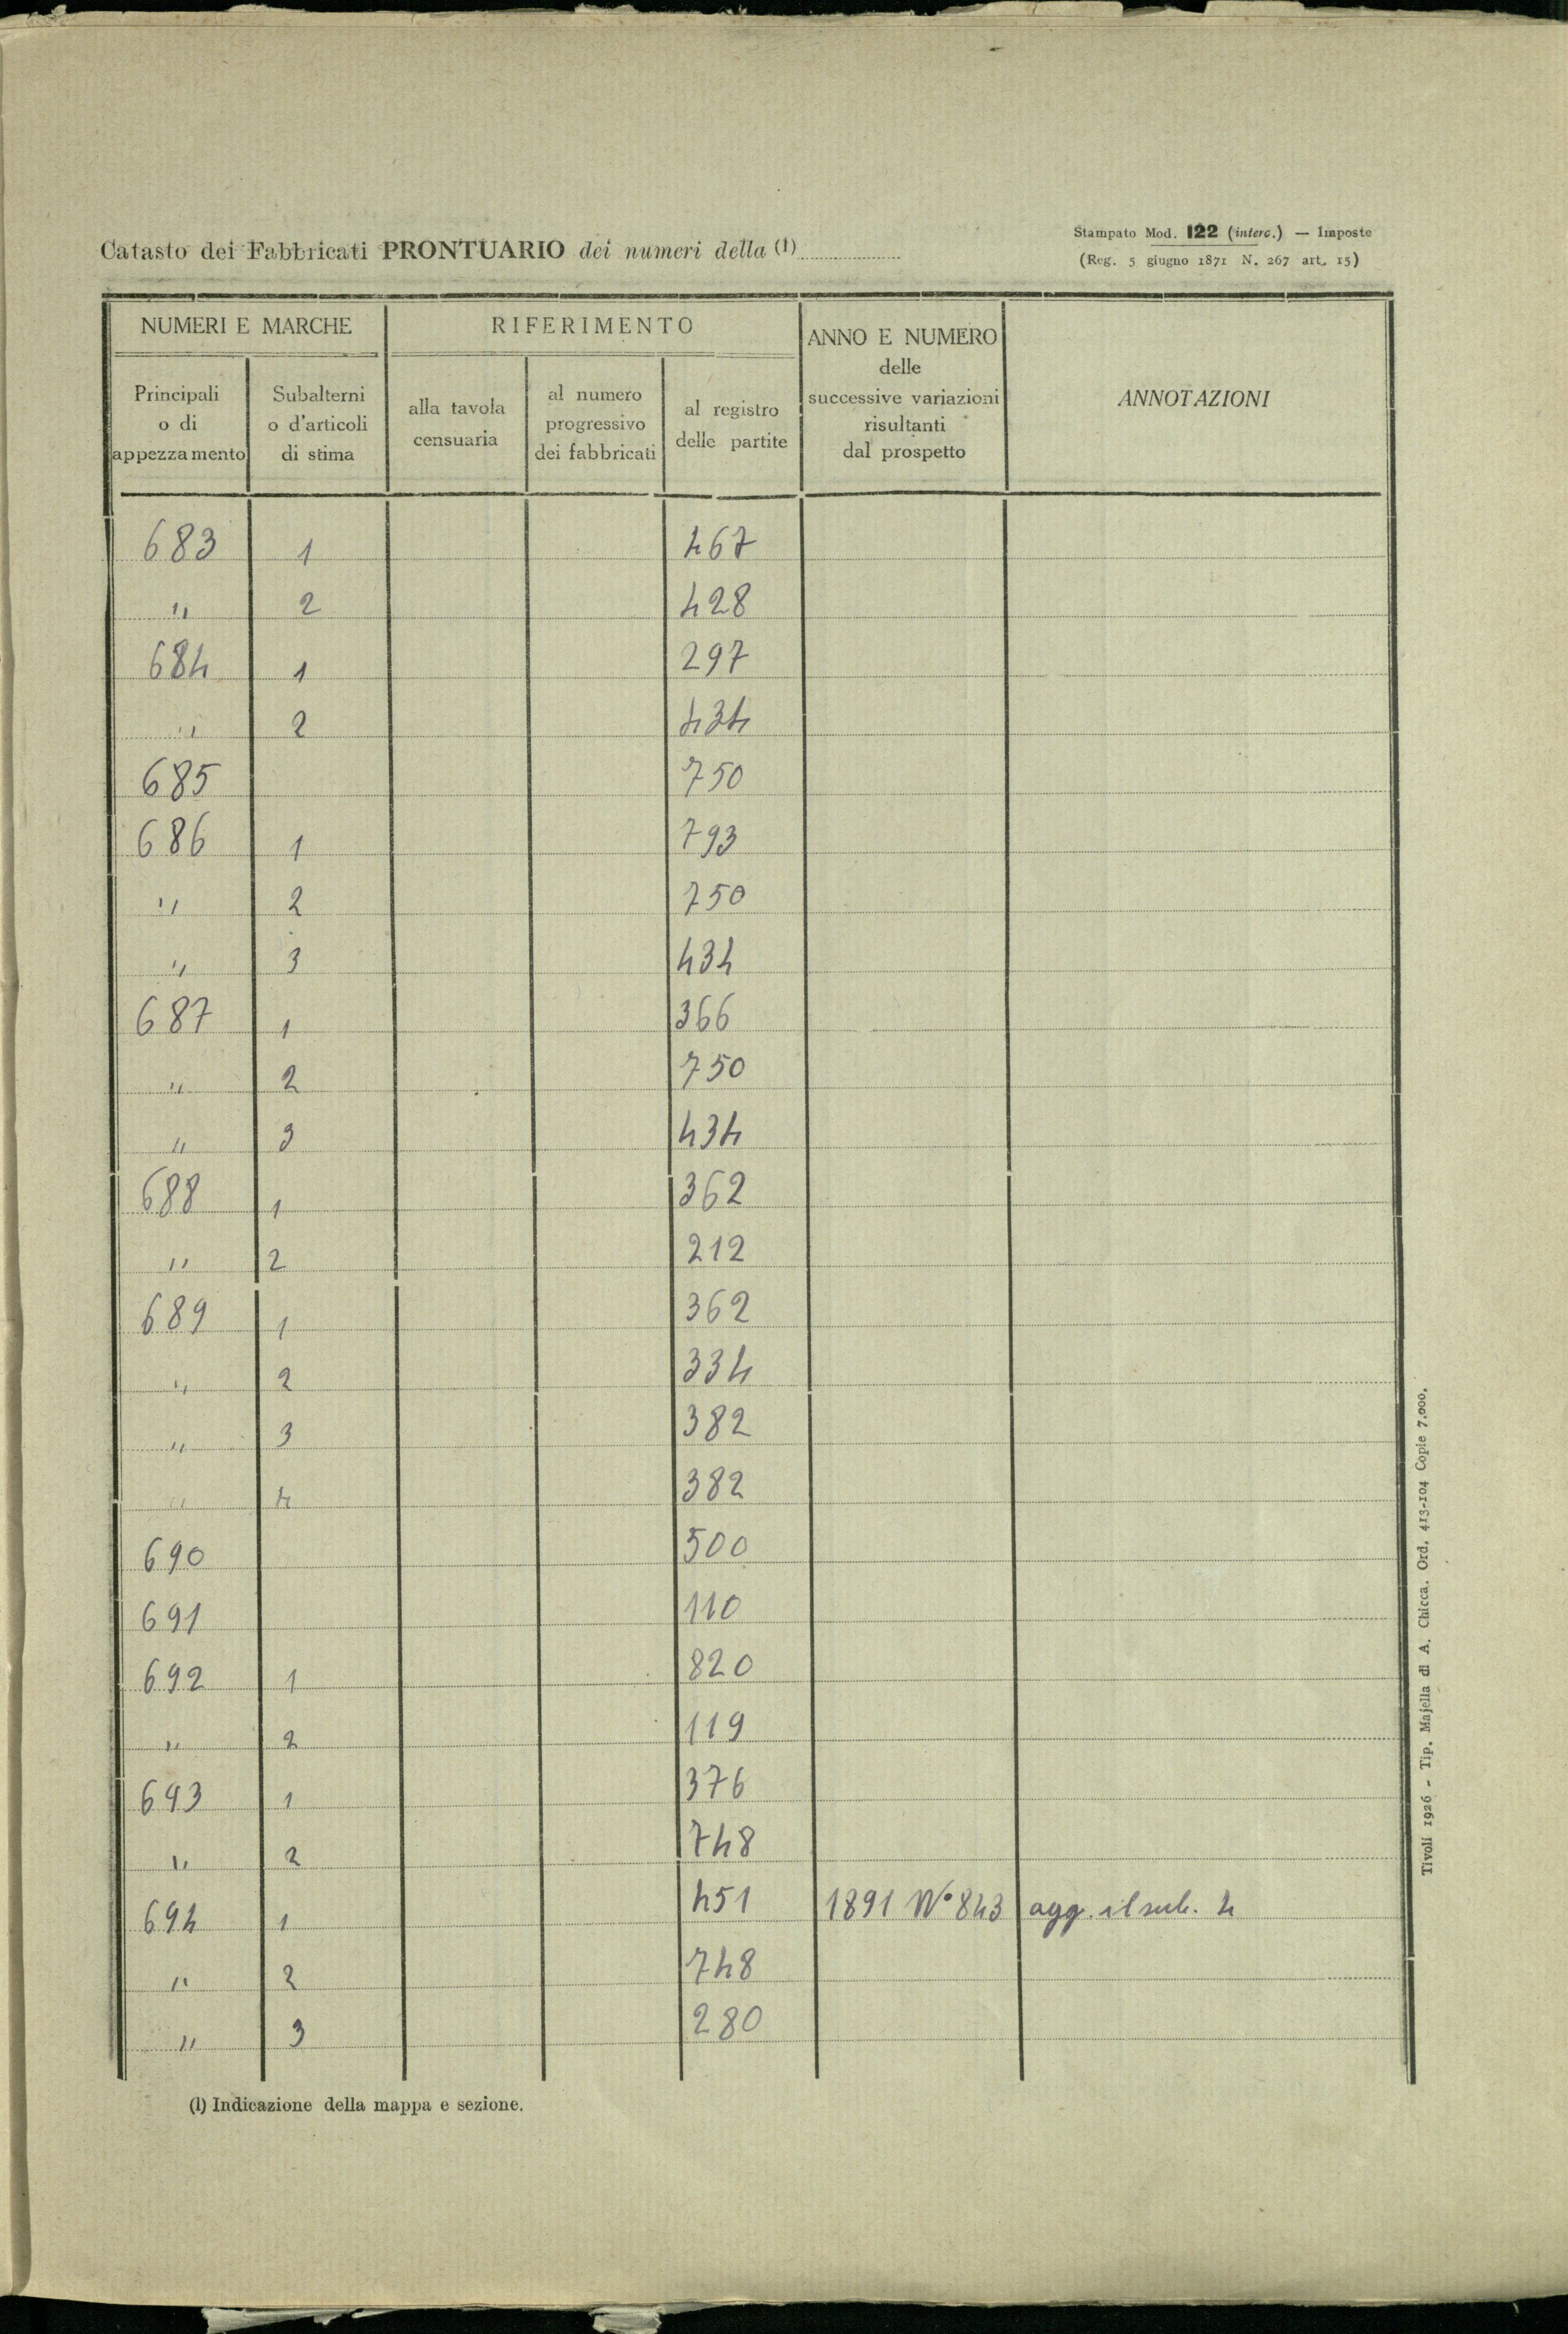 Catasto dei Fabbricati PRONTUARIO dei numeri della (1)
Stampato Mod. 122 (interc.) — Imposte
(Reg. 5 giugno 1871 N. 267 art. 15)
NUMERI E MARCHE
RIFERIMENTO
ANNO E NUMERO
delle
successive variazioni
risultanti
dal prospetto
ANNOTAZIONI
Principali
o di
appezzamento
Subalterni
o d'articoli
di stima
alla tavola
censuaria
al numero
progressivo
dei fabbricati
al registro
delle partite
683 1 467
" 2 428
684 1 297
" 2 434
685 750
686 1 793
" 2 750
" 3 434
687 1 366
" 2 750
" 3 434
688 1 362
" 2 212
689 1 362
" 2 334
" 3 382
" 4 382
690 500
691 110
692 1 820
" 2 119
693 1 376
" 2 748
694 1 451 1891 N° 843 agg. il sub. 4
" 2 748
" 3 280
(1) Indicazione della mappa e sezione.
Tivoli 1926 - Tip. Majella di A. Chicca. Ord. 413-104 Copie 7.000.